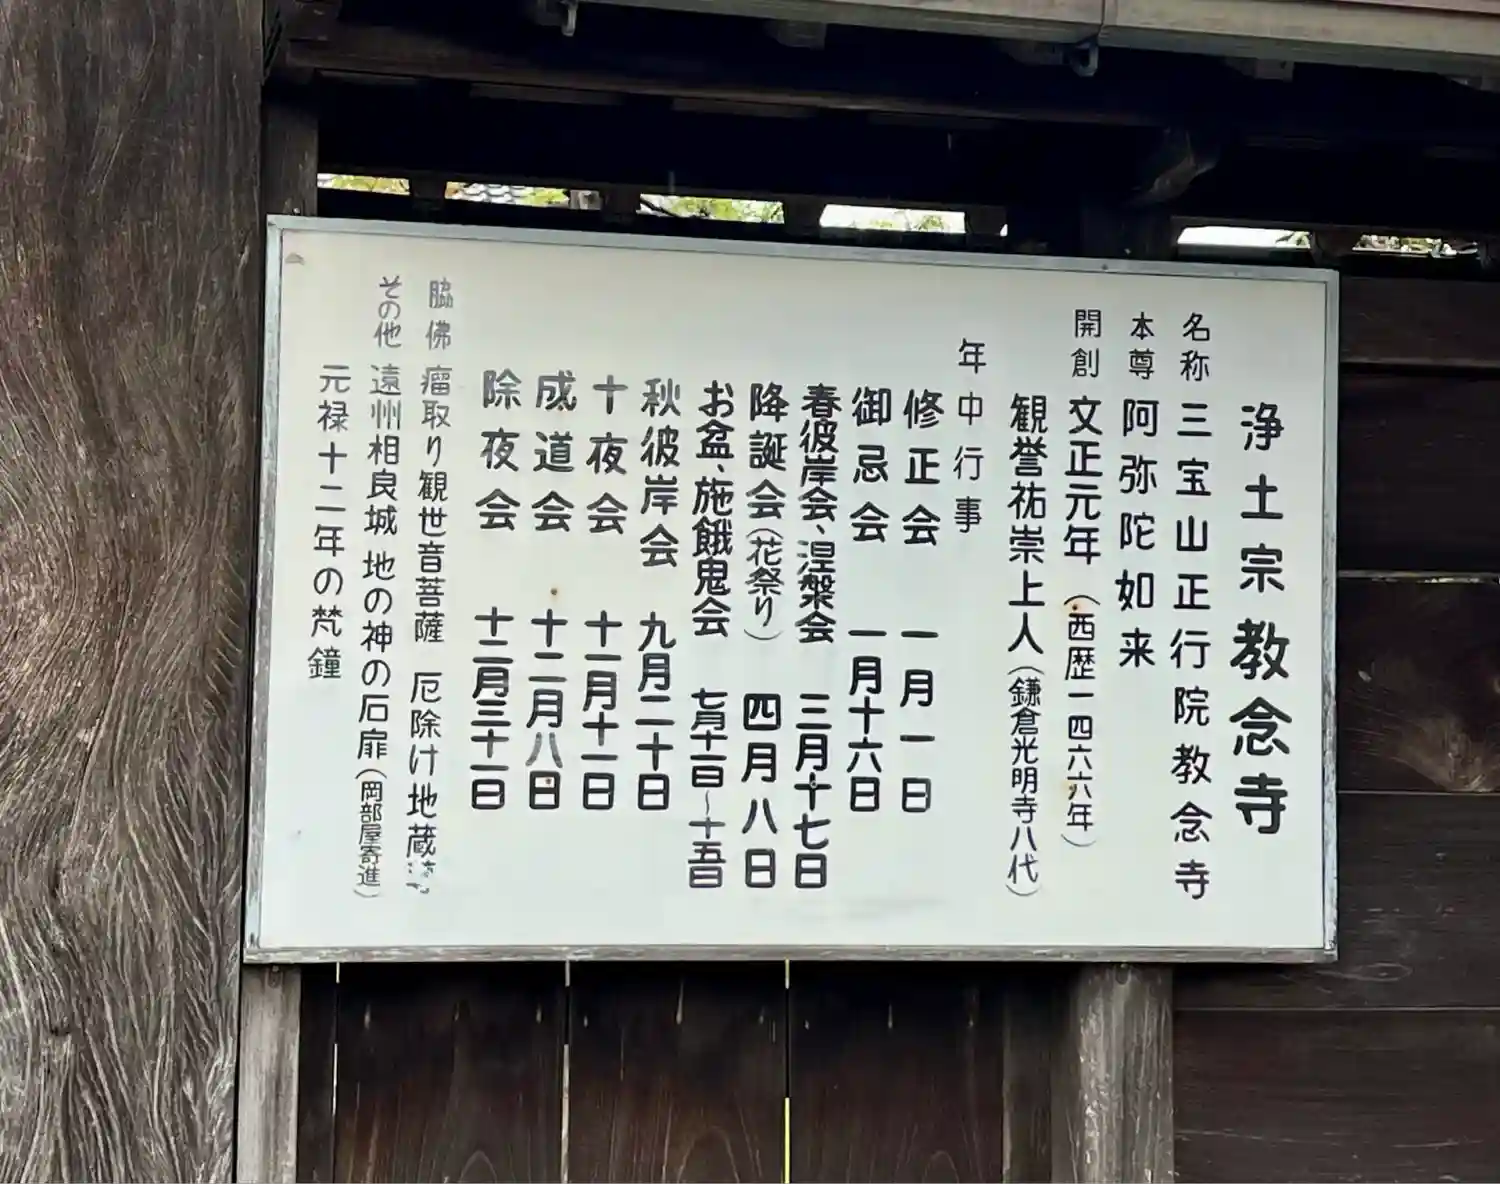 浄土宗 教念寺
名称 三宝山正行院教念寺
本尊 阿弥陀如来
開創 文正元年(西歴一四六六年)
観誉祐崇上人(鎌倉光明寺八代)
年中行事
修正会 一月一日
御忌会 一月十六日
春彼岸会、涅槃会 三月十七日
降誕会(花祭り) 四月八日
お盆、施餓鬼会 七月十一日~十五日
秋彼岸会 九月二十日
十夜会 十一月十一日
成道会 十二月八日
除夜会 十二月三十一日
脇佛 瘤取り観世音菩薩 厄除け地蔵
その他 遠州相良城 地の神の石扉(岡部屋寄進)
元禄十二年の梵鐘